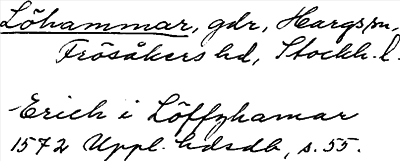 Löhammar, gdr, Hargs sn,
Frösåkers hd, Stockh. l.
Erich i Löffzhamar
1572 Uppl. hdsdb, s. 55.